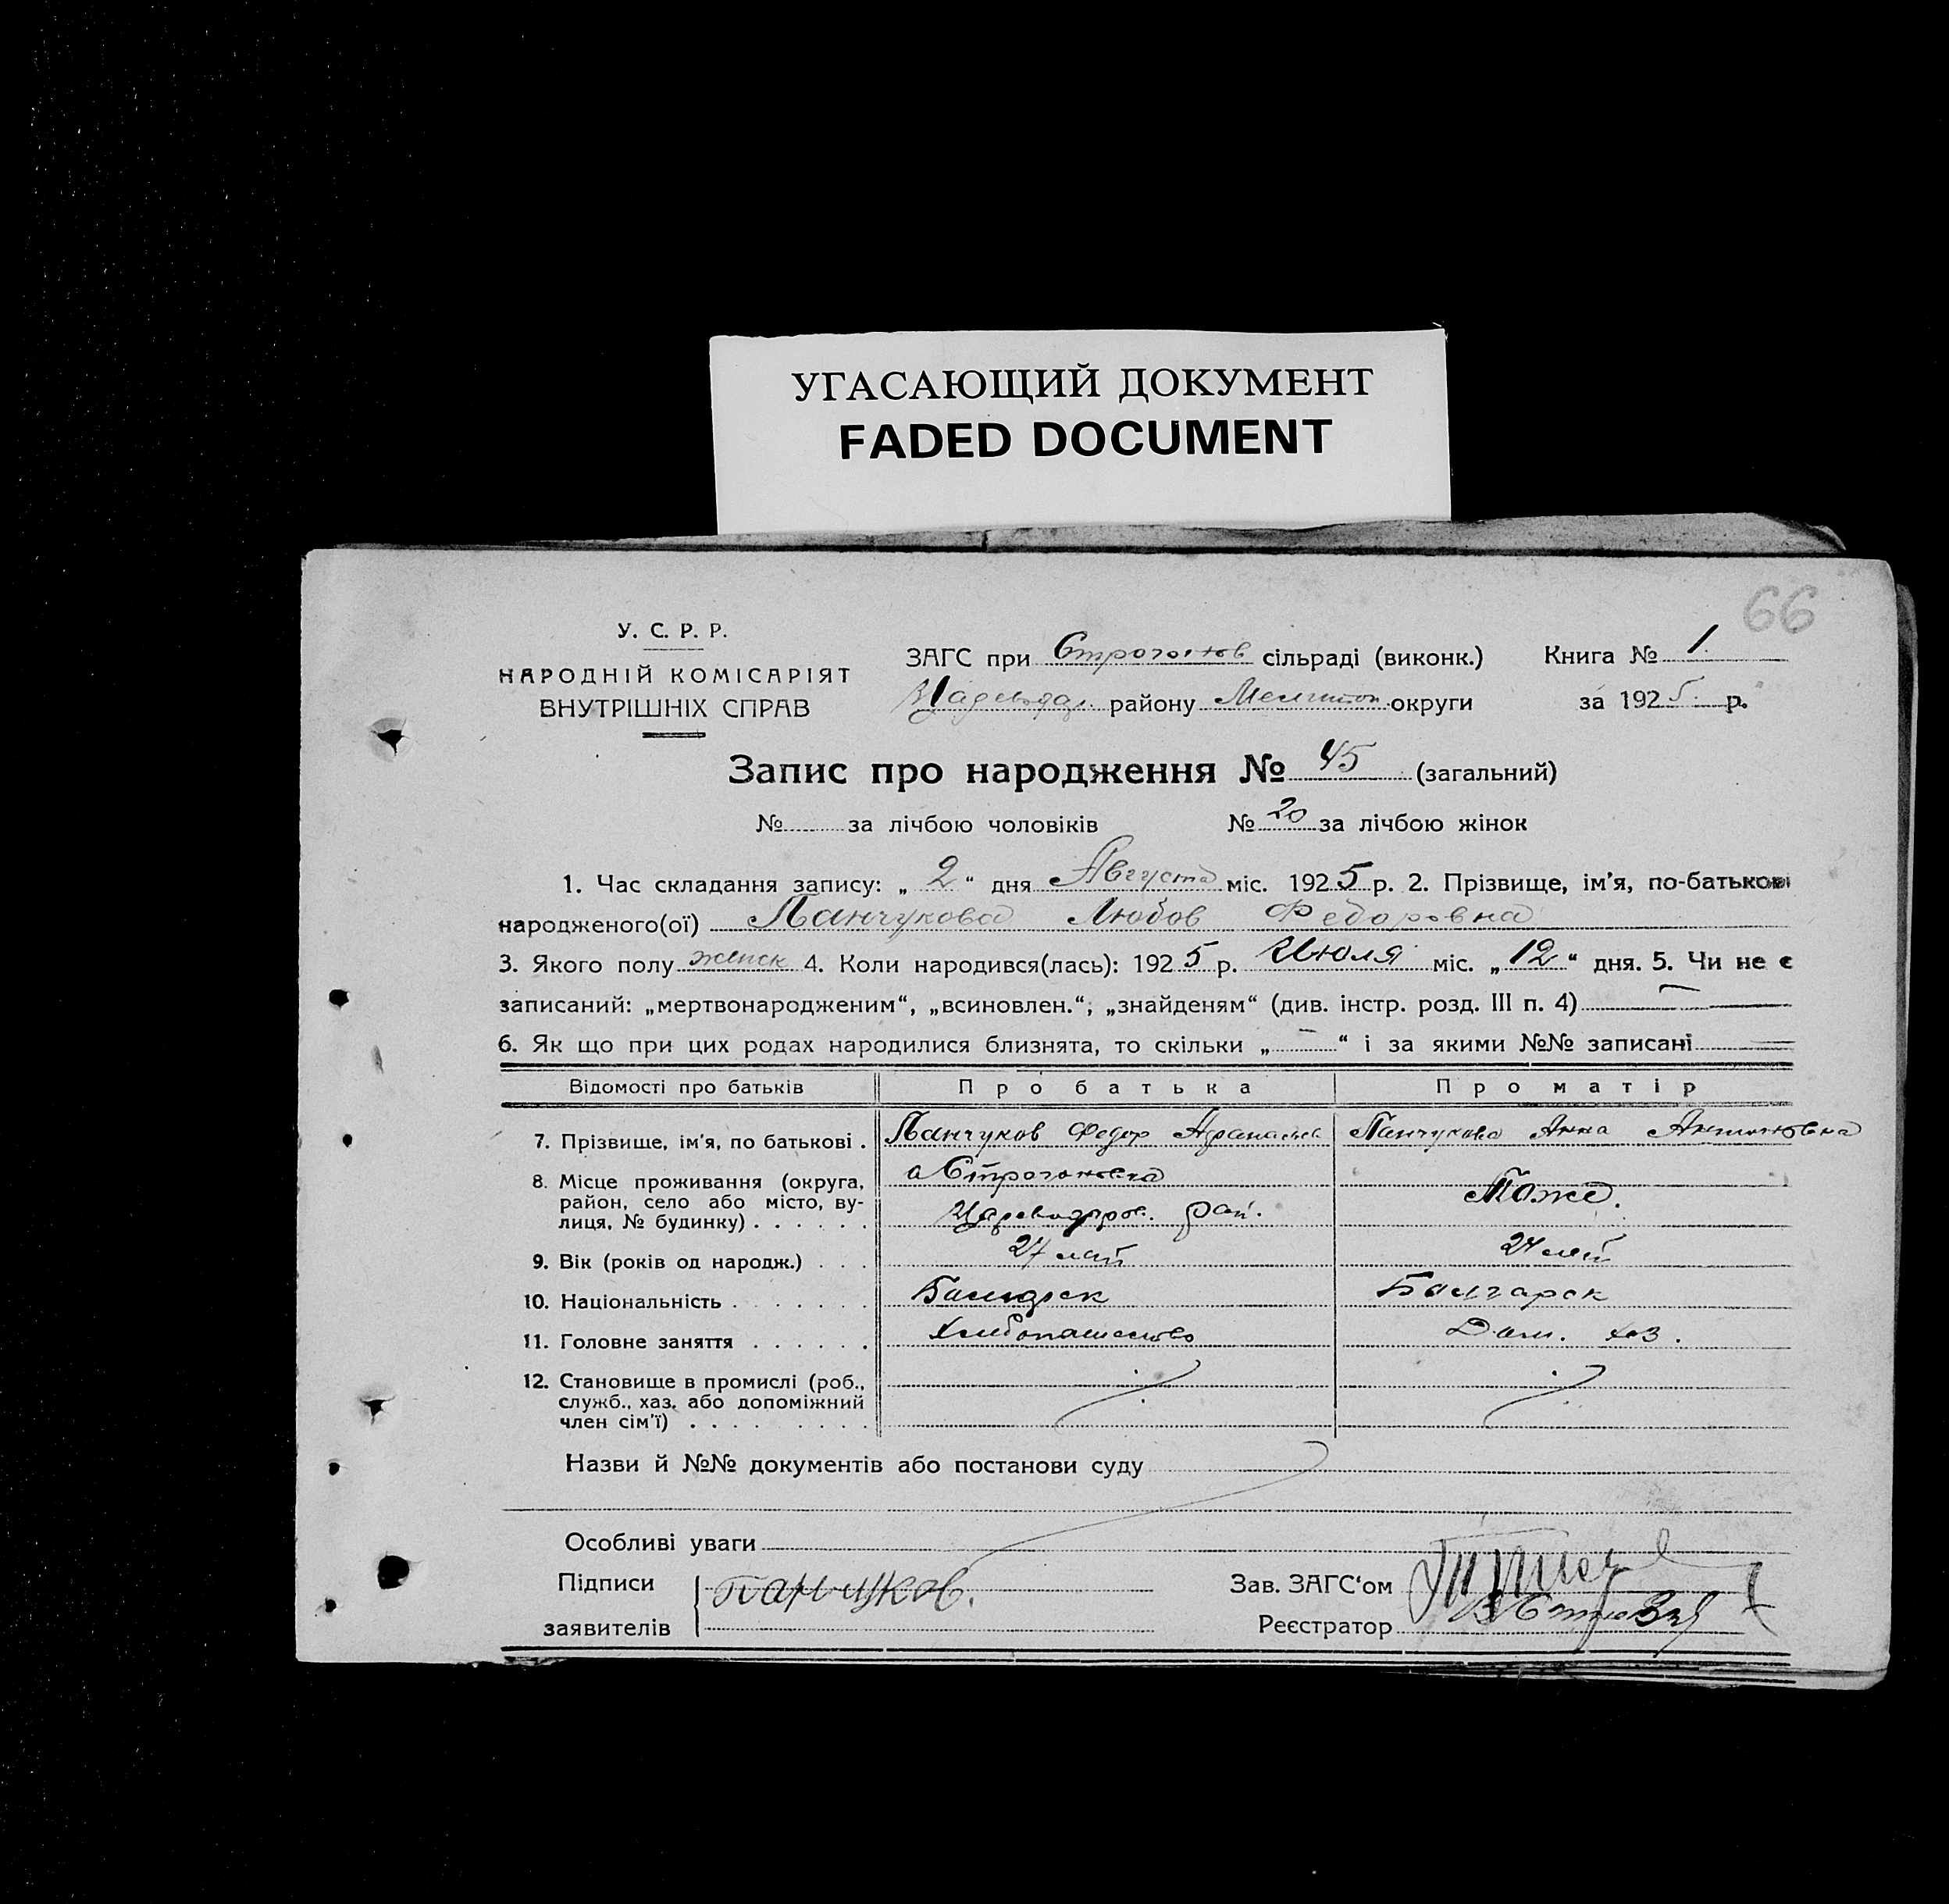 УГАСАЮЩИЙ ДОКУМЕНТ
FADED DOCUMENT
66
У. С. Р. Р.
НАРОДНІЙ КОМІСАРІЯТ
ВНУТРІШНІХ СПРАВ
ЗАГС при Строгонов сільраді (виконк.) Книга № 1
району Мелитоп округи за 1925 р.
Запис про народження № 45 (загальний)
№ за лічбою чоловіків № 20 за лічбою жінок
1. Час складання запису: „ 2 “ дня Августа міс. 1925 р. 2. Прізвище, ім'я, по-батькові
народженого(ої) Панчукова Любов Федоровна
3. Якого полу женск 4. Коли народився(лась): 1925 р. Июля міс. „ 12 “ дня. 5. Чи не є
записаний: „мертвонародженим“, „всиновлен.“; „знайденям“ (див. інстр. розд. III п. 4)
6. Як що при цих родах народилися близнята, то скільки „ “ і за якими №№ записані
Відомості про батьків Про батька Про матір
7. Прізвище, ім'я, по батькові . Панчуков Федор Панчукова Анна Антоновна
8. Місце проживання (округа, район, село або місто, вулиця, № будинку) . . . . . . Строгоновка
Цареводаров. рай. Тоже.
9. Вік (років од народж.) . . . 27 лет 24 лет
10. Національність . . . . . . . Болгарск
11. Головне заняття . . . . . . Хлебопашество Дом. хоз.
12. Становище в промислі (роб.,
служб., хаз. або допоміжний
член сім'ї) . . . . . . . . .
Назви й №№ документів або постанови суду
Особливі уваги
Підписи
заявителів Панчуков.
Зав. ЗАГС'ом
Реєстратор